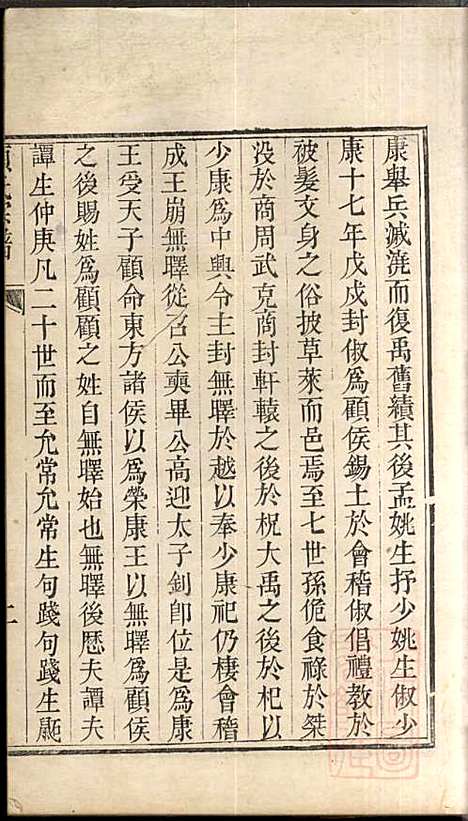 康舉兵滅澆而復禹舊績其後孟姚生抒少姚生俶少
康十七年戊戍封俶爲顧侯錫土於會稽俶倡禮教於
被髮文身之俗披草萊而邑焉至七世孫佹食祿於桀
没於商周武克商封軒轅之後於柷大禹之後於杞以
少康爲中興令主封無驛於越以奉少康祀仍棲會稽
成王崩無驛從召公奭畢公高迎太子釗卽位是爲康
王受天子顧命東方諸侯以爲榮康王以無驛爲顧侯
之後賜姓爲顧顧之姓自無驛始也無驛後歷夫譚夫
譚生仲庚凡二十世而至允常允常生句踐句踐生鼫
二